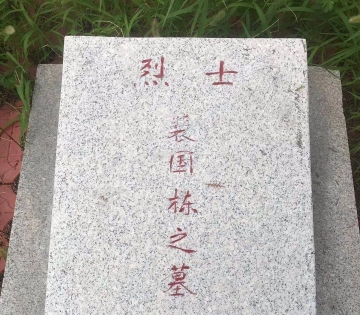 烈士
裴国栋之墓